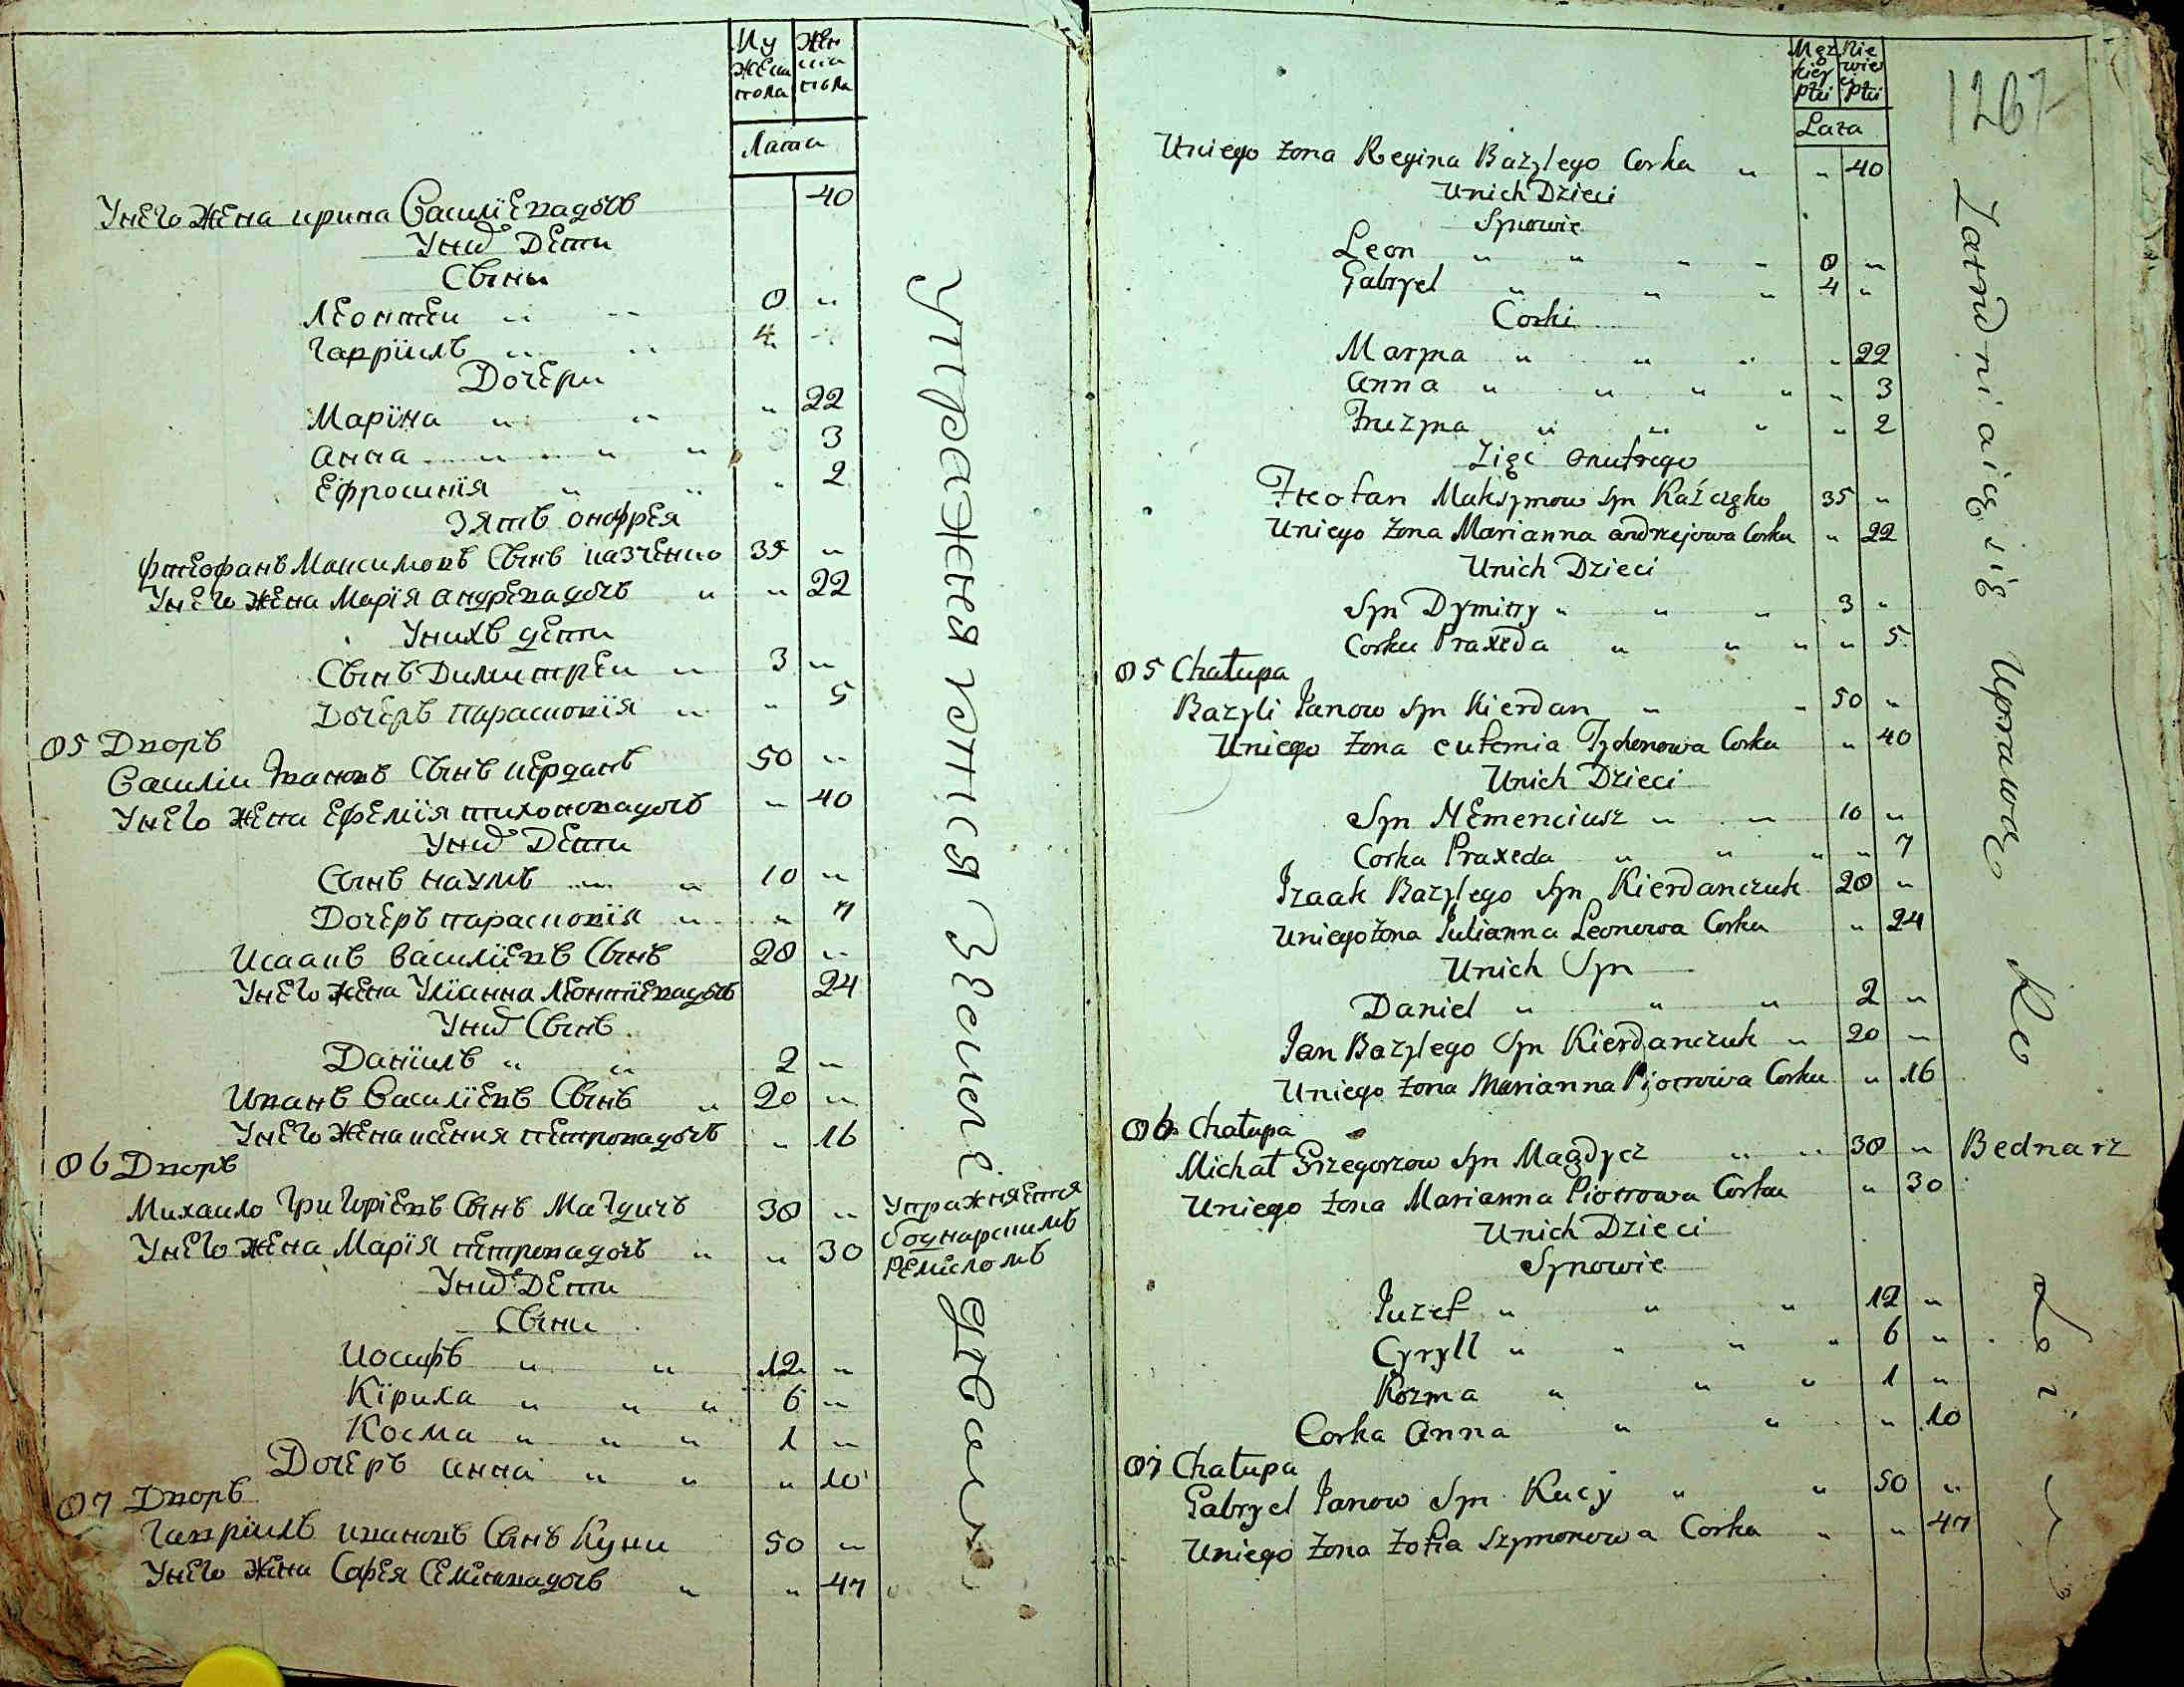 Му жеска пола
Жен ска пола
Лата
У него жена ирина Василіева дочъ " 40
У них Дети
Сыны
Леонтеи " " 8 "
Гавріилъ " " 4 "
Дочери
Маріна " " " 22
анна " " " 3
Ефросинія " " " 2
Зять онофрея
Фтеофанъ Максимовъ Сынъ казченко 35 "
У него жена Марія андреева дочъ " " 22
У нихъ дети
Сынъ Димитреи " 3 "
Дочеръ парасковія " " 5
85 Дворъ
Василіи Ивановъ Сынъ керданъ 50 "
У него жена Ефемія тихонова дочъ " 40
У них Дети
Сынъ наумъ " " 10 "
Дочеръ парасковія " " 7
Исаакъ василіевъ Сынъ 28 "
У него жена Уліанна леонтіева дочъ 24
У них Сынъ
Даніилъ " " 2 "
Иванъ Василіевъ Сынъ " 20 "
У него жена ксения петрова дочъ " 16
86 Дворъ
Михаило Григоріевъ Сынъ Магдичъ 38 "
У него жена Марія петрова дочъ " " 30
Упражняется
боднарскимъ
ремисломъ
У них Дети
Сыни
Иосифъ " " 12 "
Кірила " " " 6 "
Косма " " " 1 "
Дочеръ анна " " " 10
87 Дворъ
Гавріилъ ивановъ Сынъ Куци 50 "
У него жена Софея Семенова дочъ " " 47
Упражняются Земледъ
Męz kiey płci
Nie wie ś płci
Lata
1267
U niego żona Regina Bazylego Corka " " 40
U nich Dzieci
Synowie
Leon " " " " 8 "
Gabryel " " " 4 "
Corki
Maryna " " " " 22
anna " " " " " 3
Fruzyna " " " " 2
Zięć onufrego
Fteofan Maksymow Syn Kaźczęko 35 "
U niego żona Marianna andrzejowa Corka " 22
U nich Dzieci
Syn Dymitry " " " 3 "
Corka Praxeda " " " " 5
85 Chałupa
Bazyli Janow Syn Kierdan " " 50 "
U niego żona eufemia Tychonowa Corka " 40
U nich Dzieci
Syn NEmenciusz " " 10 "
Corka Praxeda " " " " 7
Izaak Bazylego Syn Kierdanczuk 28 "
U niego żona Julianna Leonowa Corka " 24
U nich Syn
Daniel " " " 2 "
Jan Bazylego Syn Kierdanczuk " 20 "
U niego żona Marianna Piotrowa Corka " 16
86 Chałupa
Michał Grzegorzow Syn Magdycz " " 38 " Bednarz
U niego żona Marianna Piotrowa Corka " 30
U nich Dzieci
Synowie
Juzef " " " 12 "
Cyryll " " " " 6 "
Kozma " " " 1 "
Corka anna " " " 10
87 Chałupa
Gabryel Janow Syn Kucy " " 50 "
U niego żona Zofia Szymonowa Corka " " 47
Zatrudniaią się Uprawą Ro